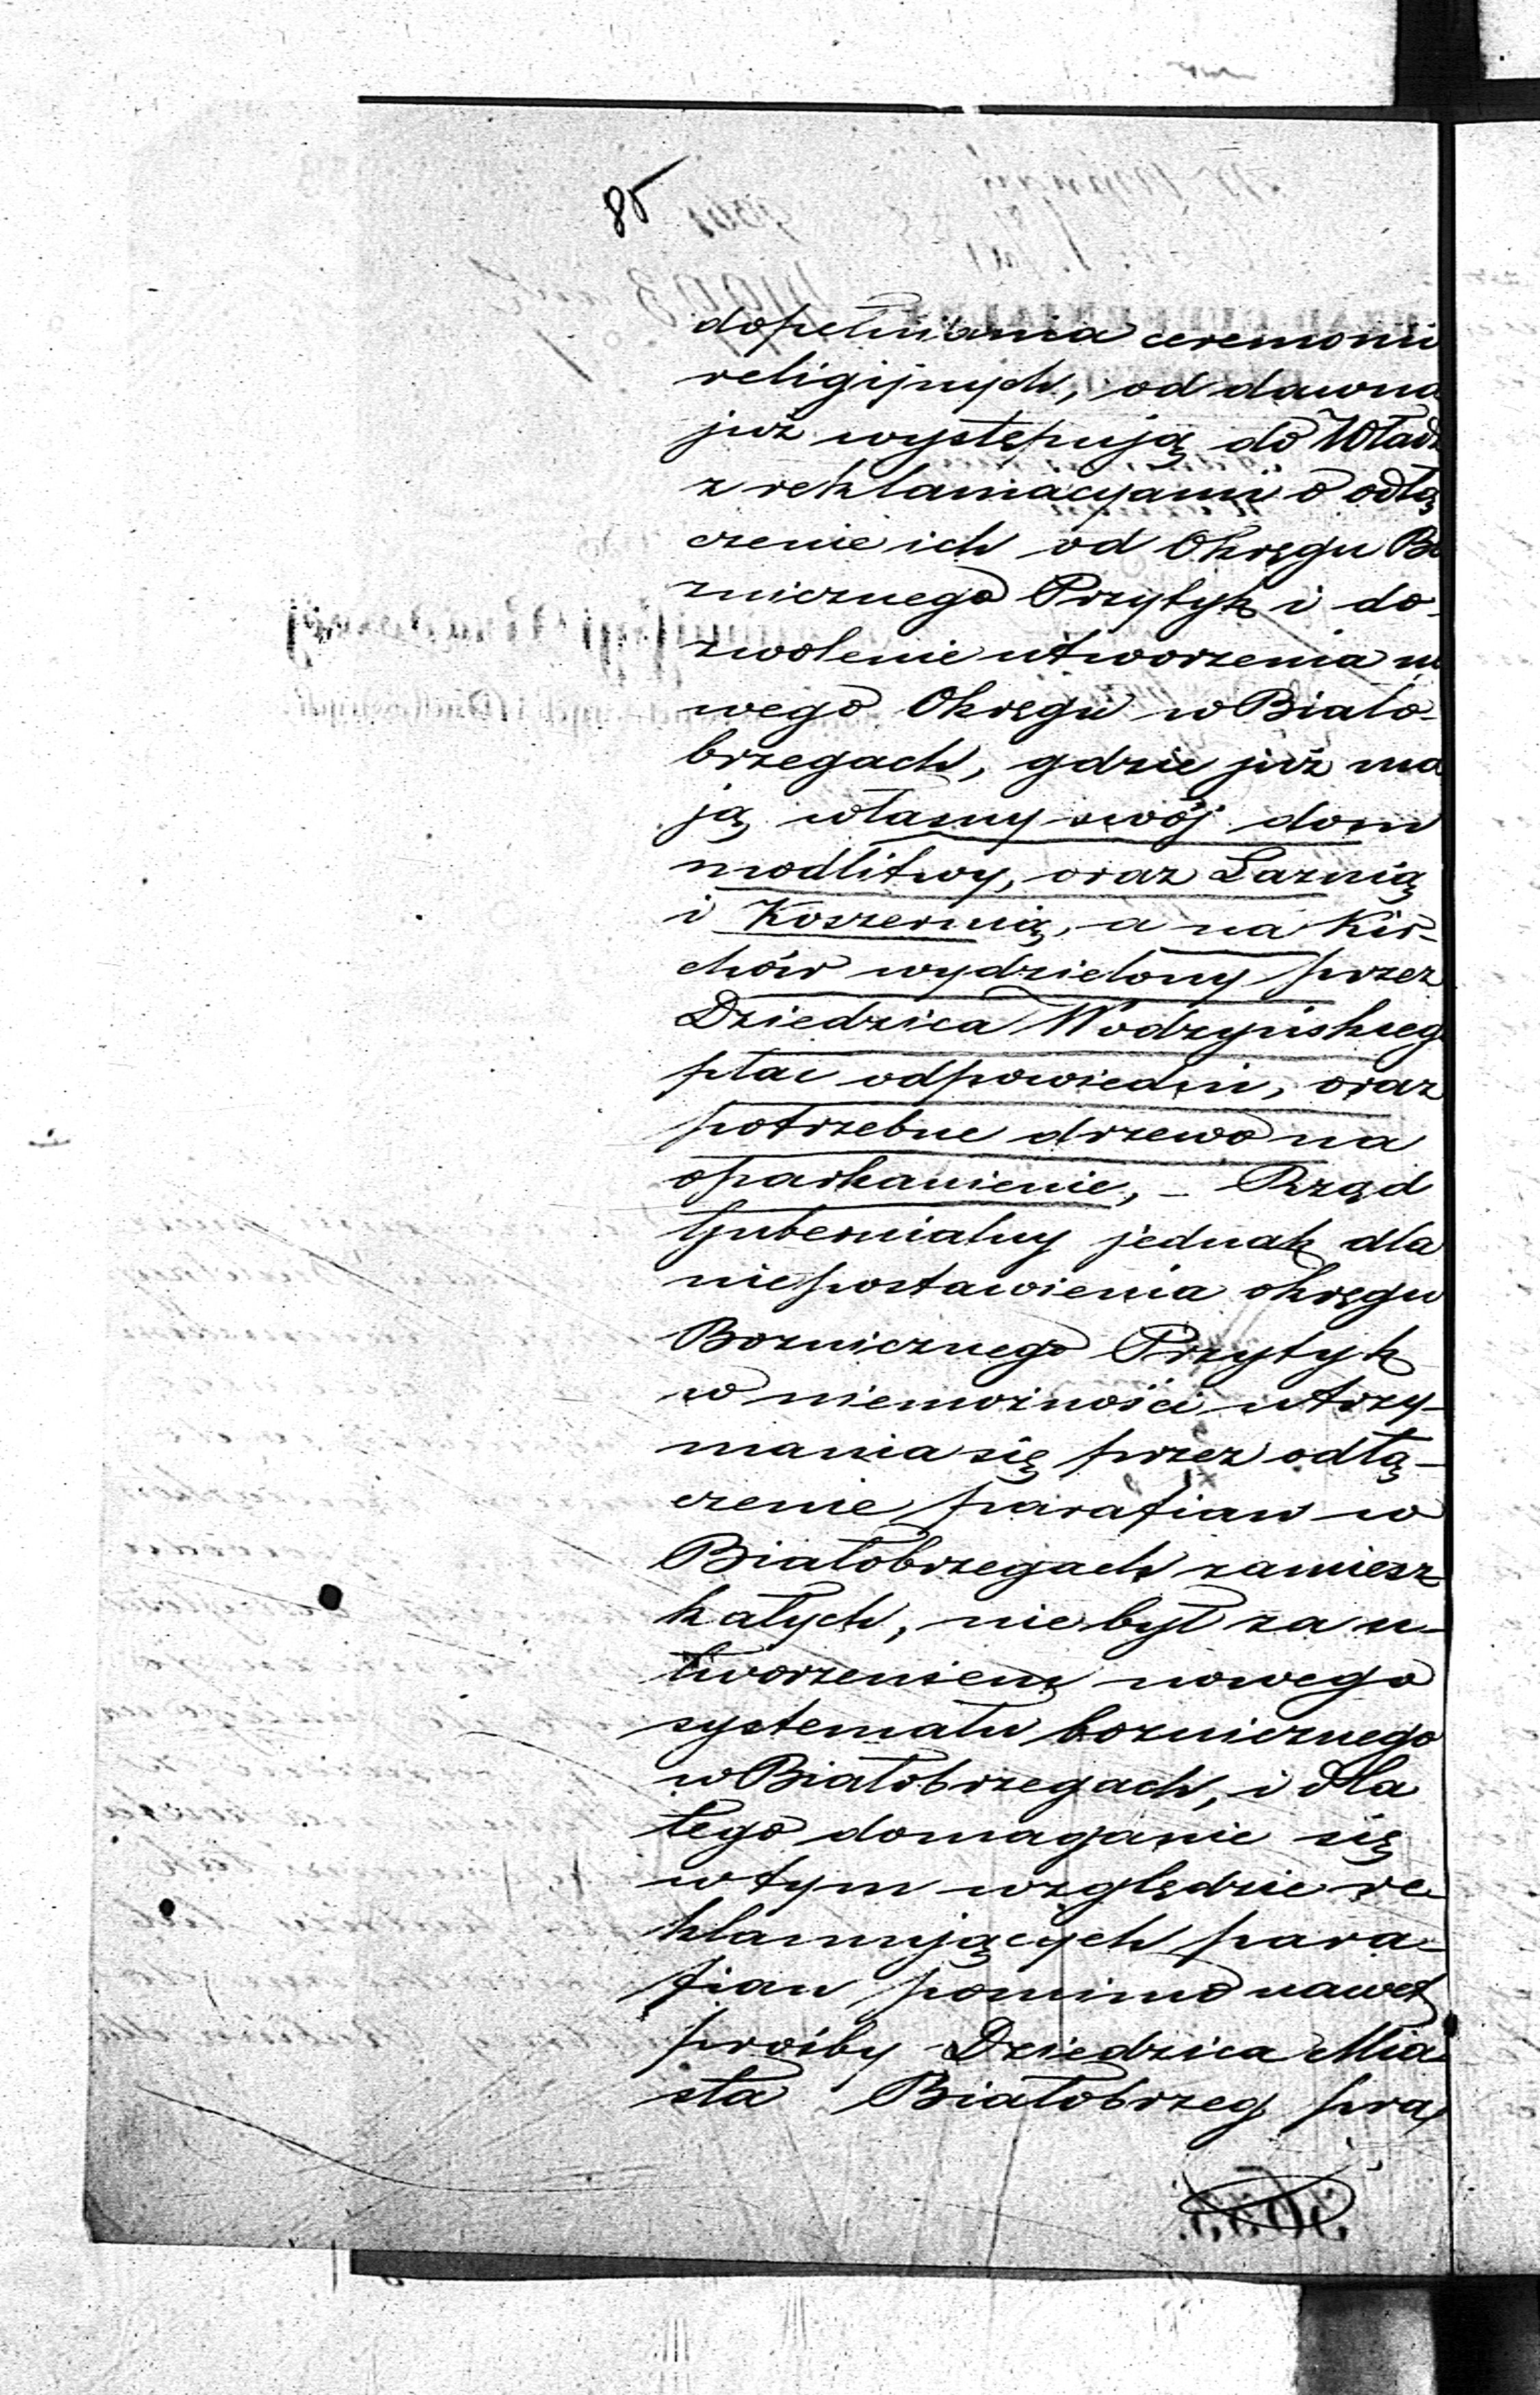 85
dopełniania ceremonii
religijnych, od dawna
już występują do Władz
z reklamacyami o odłą
czenie ich od Okręgu Bo
znicznego Przytyk i do-
zwolenie utworzenia no
wego Okręgu w Biało-
brzegach, gdzie już ma
ją własny swój dom
modlitwy, oraz Łaznią
i Koszernią, a na Kir-
chów wydzielony przez
Dziedzica Wodzyńskieg
plac odpowiedni, oraz
potrzebne drzewo na
oparkanienie, – Rząd
Gubernialny jednak dla
niepostawienia okręgu
Boznicznego Przytyk
w niemożności utrzy-
mania się przez odłą-
czenie parafian w
Białobrzegach zamiesz-
kałych, nie był za u-
tworzeniem nowego
systematu bozniczego
w Białobrzegach, i dla
tego domaganie się
w tym względzie re-
klamujących para-
fian pomimo nawet
prośby Dziedzica Mia-
sta Białobrzeg pra